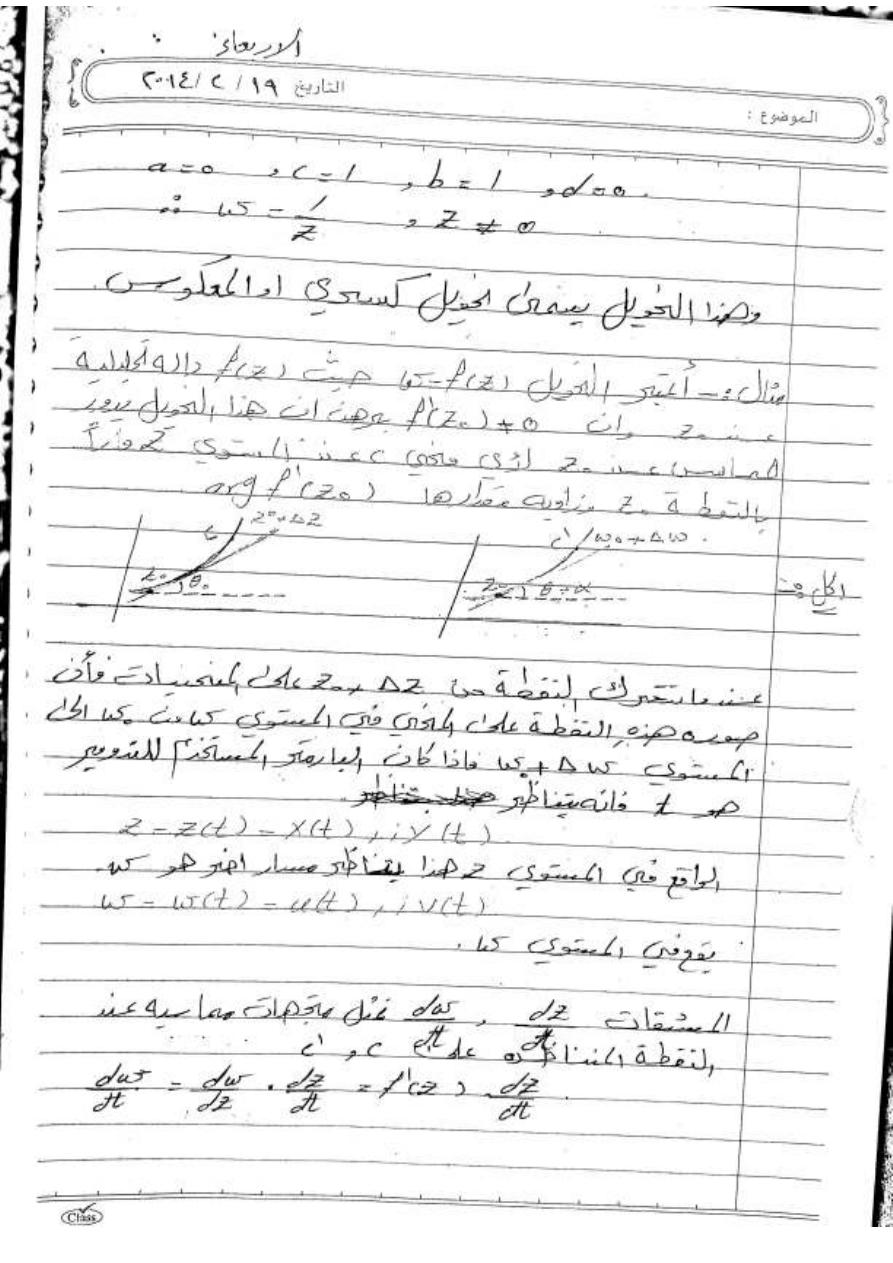 الاربعاء
التاريخ ١٩ / ٢ / ٢٠١٤
الموضوع :
a = 0 , c = 1 , b = 1 , d = 0.
∴ w = 1/z , z ≠ 0
وهذا التحويل يسمى تحويل كسري او المعكوس.
مثال :- أعتبر التحويل w = f(z) حيث f(z) دالة تحليلية
عند z₀ وان f'(z₀) ≠ 0 برهن ان هذا التحويل يدور
المماس عند z₀ لاي منحني c عند المستوي z
بالنقطة z₀ بزاوية مقدارها arg f'(z₀)
c z₀+Δz
c' w₀+Δw
z₀ θ₀
z₀ θ₀+α
الحل :-
عندما تتحرك النقطة من z₀+Δz على فأن
صوره هذه النقطة على المنحني في المستوي w من w₀ الى
المستوي w₀+Δw فاذا كان البارمتر المستخدم للتدوير
هو t فانه يتناظر
z = z(t) = x(t) + iy(t)
الواقع في المستوي z هذا يتناظر مسار اخر هو w.
w = w(t) = u(t) + iv(t)
يقع في المستوي w.
المشتقات dz/dt , dw/dt تمثل متجهات مماسيه عند
النقطة المتناظره على c و c'
dw/dt = dw/dz . dz/dt = f'(z) dz/dt.
Class